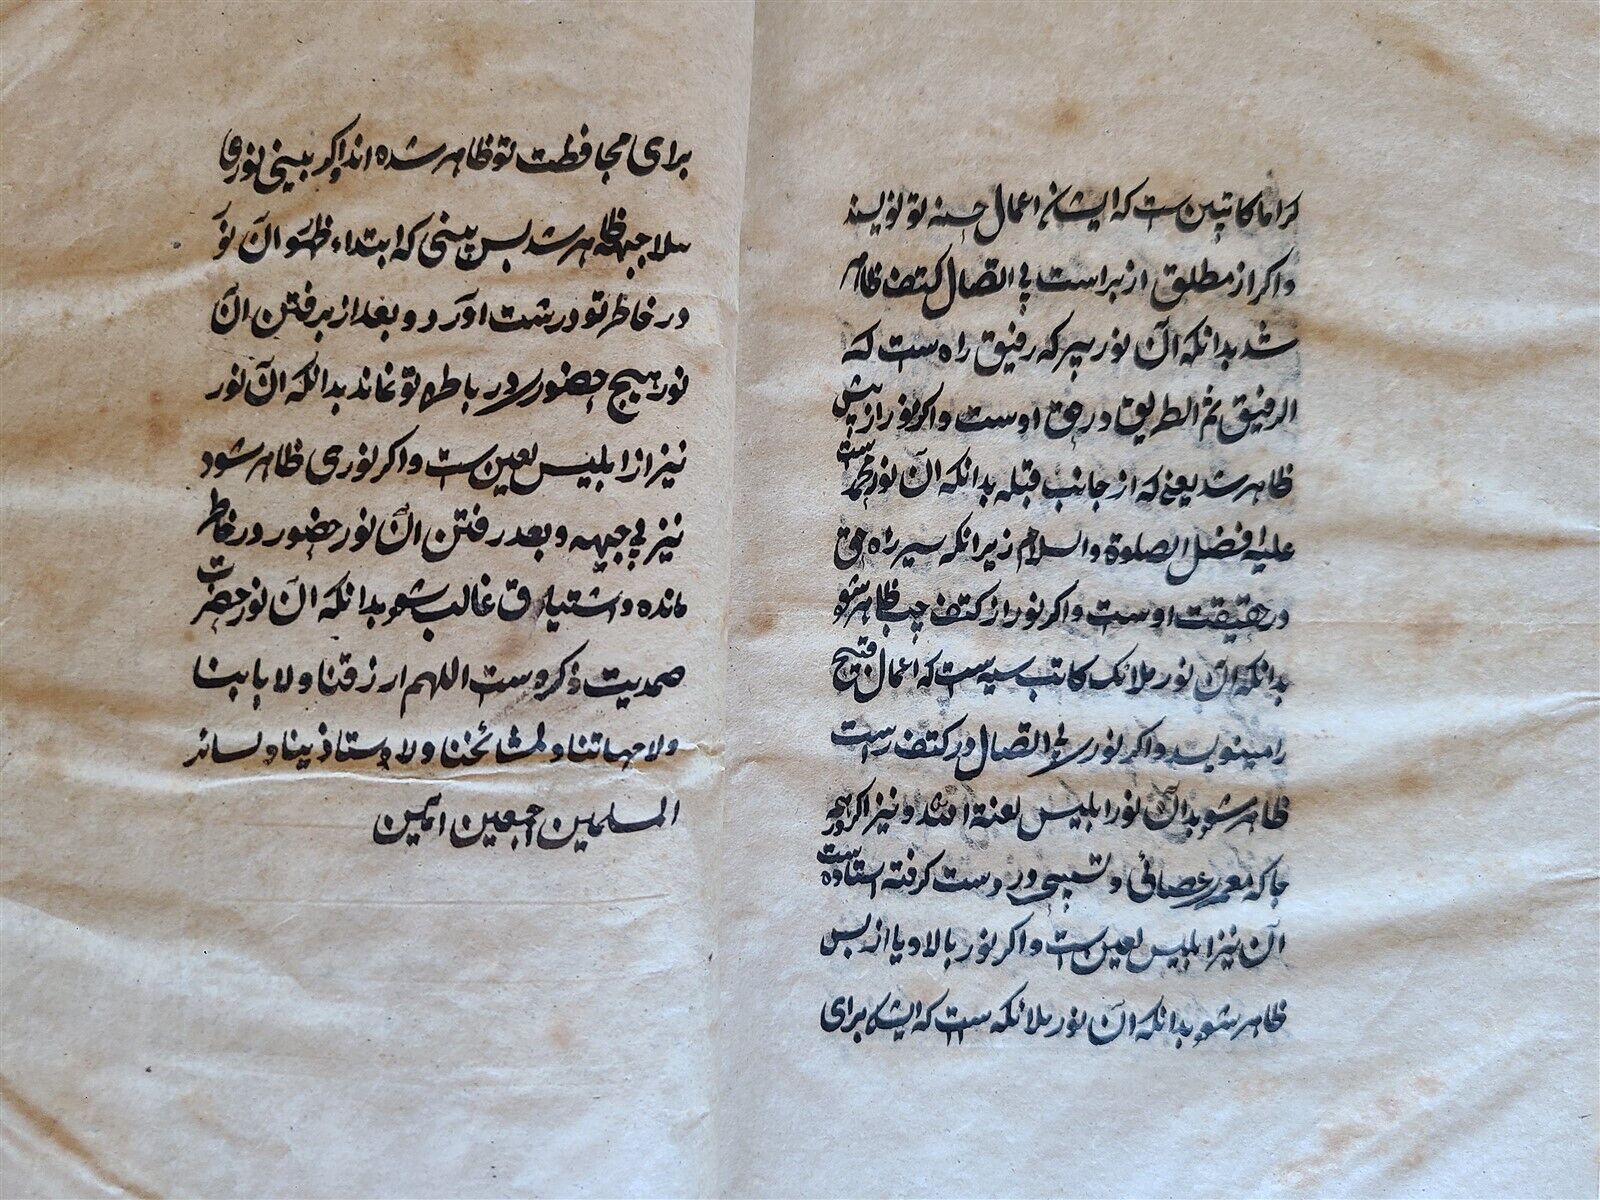 کراما کاتبین ست که ایشان اعمال حسنه تو نویسند
واکر از مطلق از براست پی اتصال کتف ظاهر
شد بدانکه ان نور پیر که رفیق راه ست که
الرفیق ثم الطریق در حق اوست واکر نور از پیش
ظاهر شد یعنی که از جانب قبله بدانکه ان نور محمد ست
علیه افضل الصلوة والسلام زیرانکه سیر راه حق
در حقیقت اوست واکر نور از کتف چپ ظاهر شو
بدانکه ان نور ملائک کاتب سیه ست که اعمال قبیح
را مینویسد واکر نور بی اتصال در کتف راست
ظاهر شو بدان نور ابلیس لعنة الله و نیز اکر
جا که معمر عصائی و تسبیح در دست کرفته استاده ست
ان نیز ابلیس لعین ست واکر نور بالا و یا از پس
ظاهر شو بدانکه ان نور ملائکه ست که ایشان برای
برای محافظت تو ظاهر شده اند اکر بینی نوری
بلا جبهه ظاهر شد پس بینی که ابتداء ظهور ان نور
در خاطر تو درشت اورد و بعد از برفتن ان
نور هیچ حضور در باطن تو نماند بدانکه ان نور
نیز از ابلیس لعین ست واکر نوری ظاهر شود
نیز بی جبهه و بعد رفتن ان نور حضور در خاطر
مانده واشتیاق غالب شو بدانکه ان نور حضرت
صمدیت ذکره ست اللهم ارزقنا ولابائنا
ولامهاتنا ولمشائخنا ولاوستاذینا ولسائر
المسلمین اجمعین امین